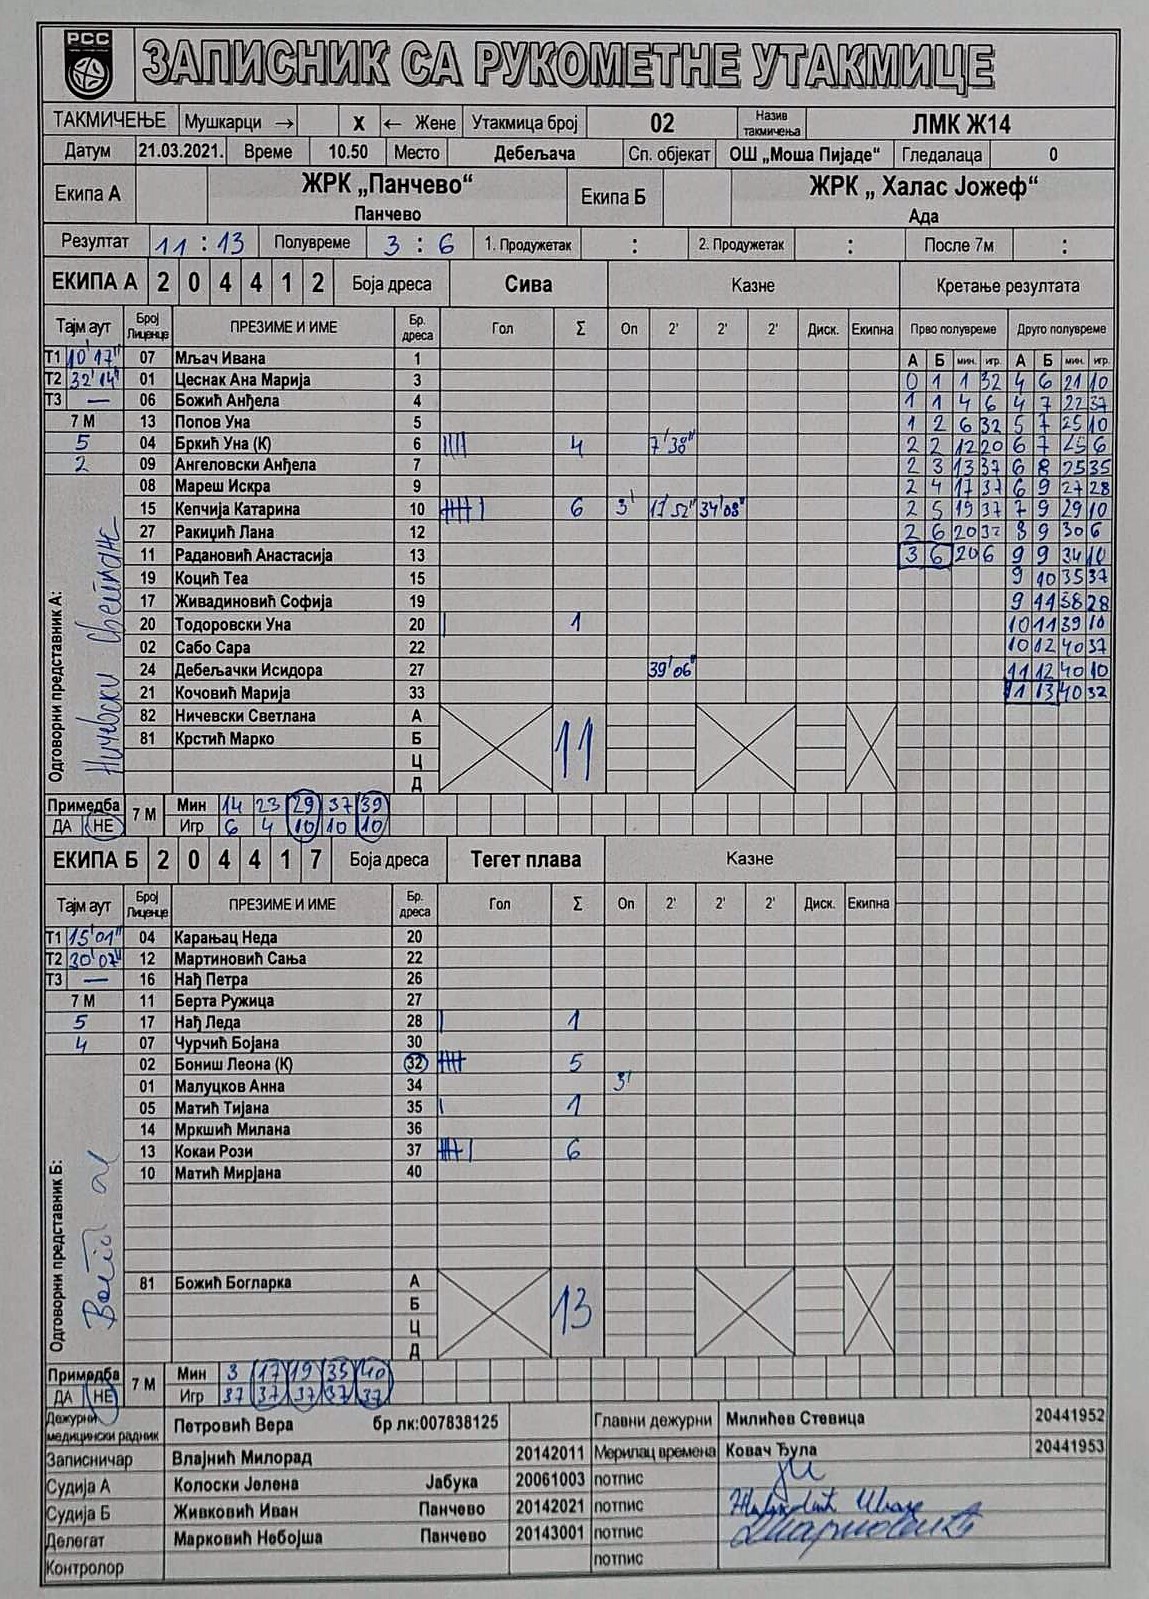 РСС
ЗАПИСНИК СА РУКОМЕТНЕ УТАКМИЦЕ
ТАКМИЧЕЊЕ Мушкарци → X ← Жене Утакмица број 02 Назив такмичења ЛМК Ж14
Датум 21.03.2021. Време 10.50 Место Дебељача Сп. објекат ОШ „Моша Пијаде“ Гледалаца 0
Екипа А ЖРК „Панчево“ Екипа Б ЖРК „ Халас Јожеф“
Панчево Ада
Резултат 11 : 13 Полувреме 3 : 6 1. Продужетак : 2. Продужетак : После 7м :
ЕКИПА А 2 0 4 4 1 2 Боја дреса Сива Казне Кретање резултата
Тајм аут Број Лиценце ПРЕЗИМЕ И ИМЕ Бр. дреса Гол Σ Оп 2' 2' 2' Диск. Екипна Прво полувреме Друго полувреме
Т1 10'17" 07 Мљач Ивана 1 А Б мин. игр. А Б мин. игр.
Т2 32'14" 01 Цеснак Ана Марија 3 0 1 1 32 4 6 21 10
Т3 — 06 Божић Анђела 4 1 1 4 6 4 7 22 37
7 М 13 Попов Уна 5 1 2 6 32 5 7 25 10
5 04 Бркић Уна (К) 6 |||| 4 7'38" 2 2 12 20 6 7 25 6
2 09 Ангеловски Анђела 7 2 3 13 37 6 8 25 35
08 Мареш Искра 9 2 4 17 37 6 9 27 28
15 Кепчија Катарина 10 6 3' 11'52" 34'08" 2 5 19 37 7 9 29 10
27 Ракиџић Лана 12 2 6 20 32 8 9 30 6
11 Радановић Анастасија 13 3 6 20 6 9 9 34 10
19 Коцић Теа 15 9 10 35 37
17 Живадиновић Софија 19 9 11 38 28
20 Тодоровски Уна 20 | 1 10 11 39 10
02 Сабо Сара 22 10 12 40 37
24 Дебељачки Исидора 27 39'06" 11 12 40 10
21 Кочовић Марија 33 11 13 40 32
82 Ничевски Светлана А 11
81 Крстић Марко Б
Ц
Д
Одговорни представник А: Ничевски Светлана
Примедба 7 М Мин 14 23 29 37 39
ДА НЕ Игр 6 4 10 10 10
ЕКИПА Б 2 0 4 4 1 7 Боја дреса Тегет плава Казне
Тајм аут Број Лиценце ПРЕЗИМЕ И ИМЕ Бр. дреса Гол Σ Оп 2' 2' 2' Диск. Екипна
Т1 15'01" 04 Карањац Неда 20
Т2 30'07" 12 Мартиновић Сања 22
Т3 — 16 Нађ Петра 26
7 М 11 Берта Ружица 27
5 17 Нађ Леда 28 | 1
4 07 Чурчић Бојана 30
02 Бониш Леона (К) 32 5
01 Малуцков Анна 34 3'
05 Матић Тијана 35 | 1
14 Мркшић Милана 36
13 Кокаи Рози 37 6
10 Матић Мирјана 40
81 Божић Богларка А 13
Б
Ц
Д
Одговорни представник Б:
Примедба 7 М Мин 3 17 19 35 40
ДА НЕ Игр 37 37 37 37 37
Дежурни медицински радник Петровић Вера бр лк:007838125 Главни дежурни Милићев Стевица 20441952
Записничар Влајнић Милорад 20142011 Мерилац времена Ковач Ђула 20441953
Судија А Колоски Јелена Јабука 20061003 потпис
Судија Б Живковић Иван Панчево 20142021 потпис Живковић Иван
Делегат Марковић Небојша Панчево 20143001 потпис
Контролор потпис